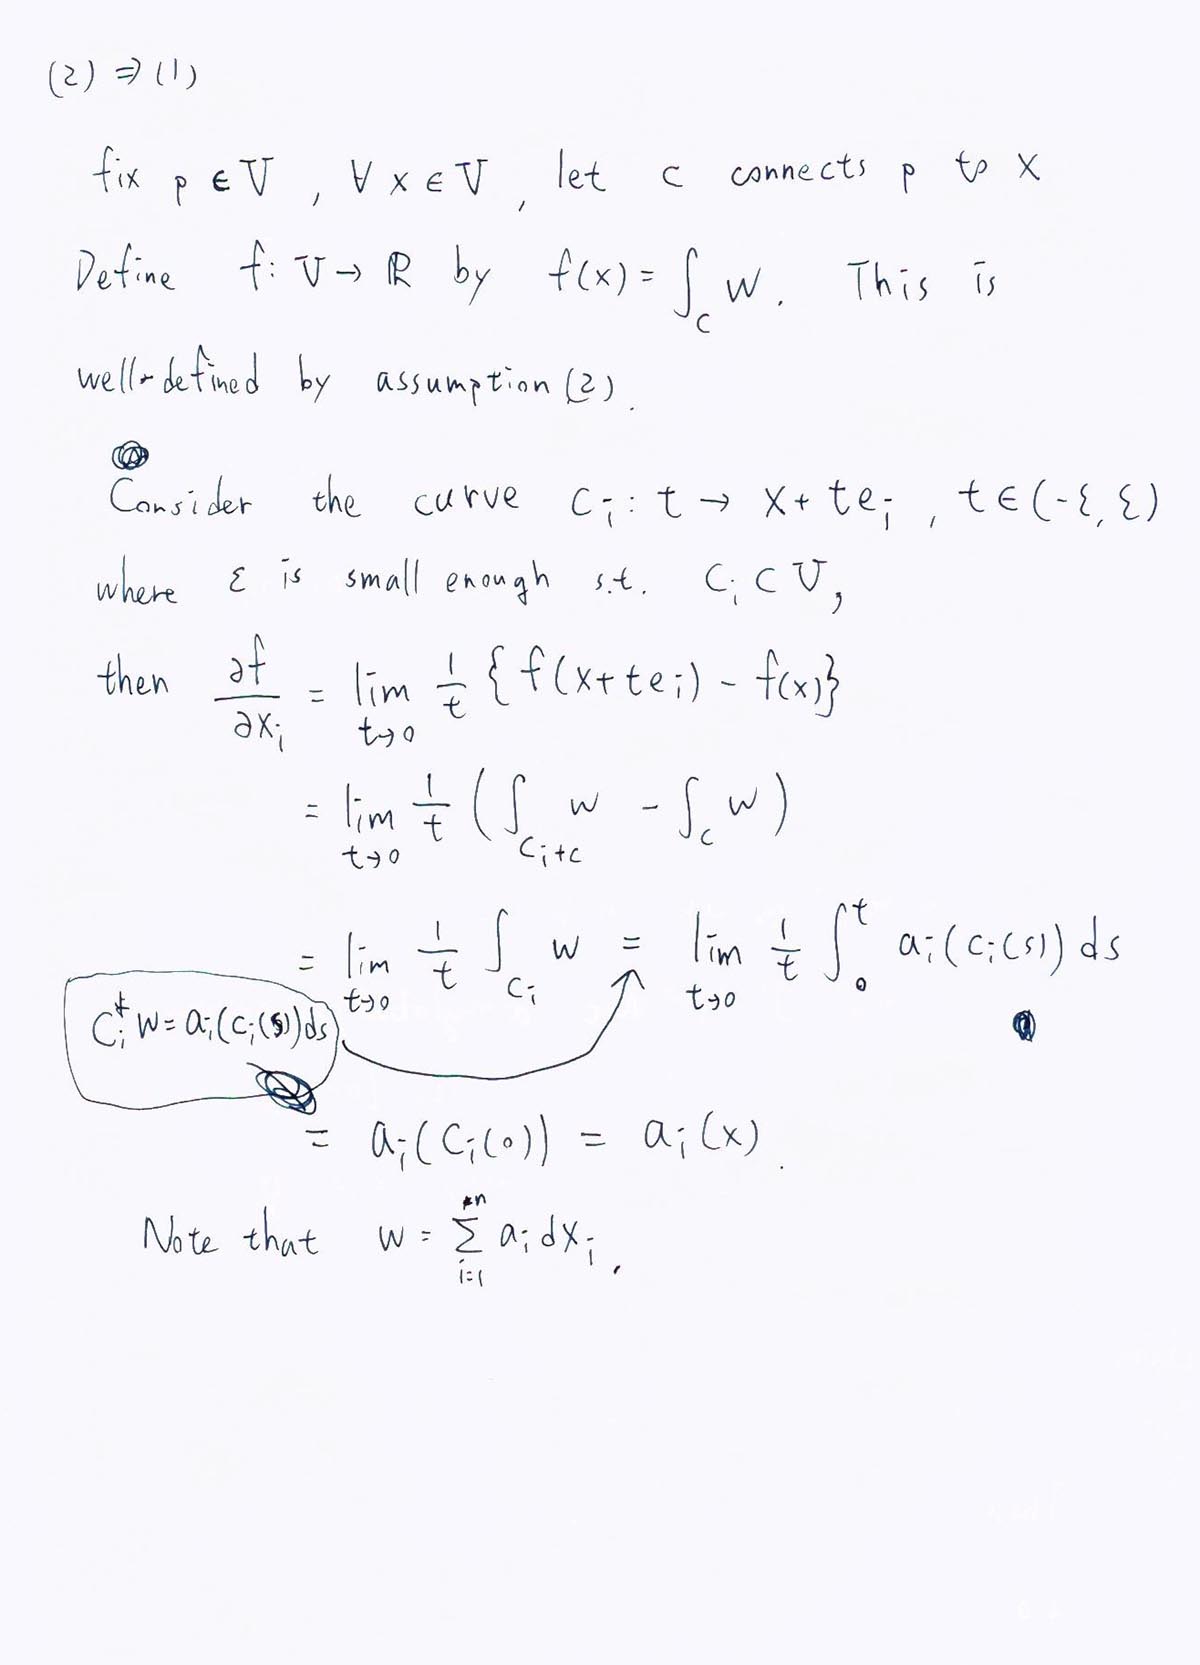 (2) ⇒ (1)
fix p ∈ V, ∀ x ∈ V, let c connects p to x
Define f: V → ℝ by f(x) = ∫_c w. This is
well-defined by assumption (2).
Consider the curve C_i : t → x + te_i, t ∈ (-ε, ε)
where ε is small enough s.t. C_i ⊂ V,
then ∂f/∂x_i = lim_{t→0} 1/t { f(x+te_i) - f(x) }
= lim_{t→0} 1/t ( ∫_{C_i+c} w - ∫_c w )
= lim_{t→0} 1/t ∫_{C_i} w = lim_{t→0} 1/t ∫_0^t a_i(c_i(s)) ds
C_i^* w = a_i(c_i(s)) ds
= a_i(C_i(0)) = a_i(x).
Note that w = ∑_{i=1}^n a_i dx_i.